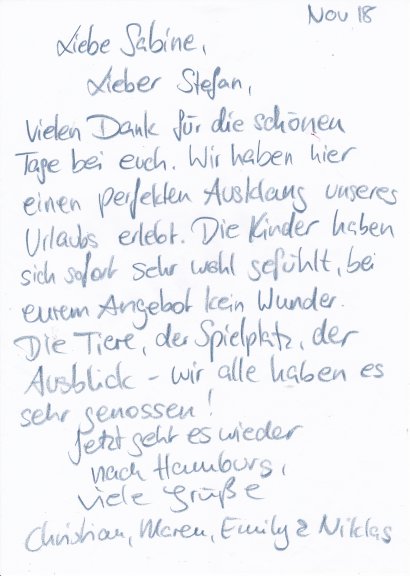 Nov 18
Liebe Sabine,
Lieber Stefan,
vielen Dank für die schönen
Tage bei euch. Wir haben hier
einen perfekten Ausklang unseres
Urlaubs erlebt. Die Kinder haben
sich sofort sehr wohl gefühlt, bei
eurem Angebot kein Wunder.
Die Tiere, der Spielplatz, der
Ausblick - wir alle haben es
sehr genossen!
Jetzt geht es wieder
nach Hamburg,
viele Grüße
Christian, Maren, Emily & Niklas